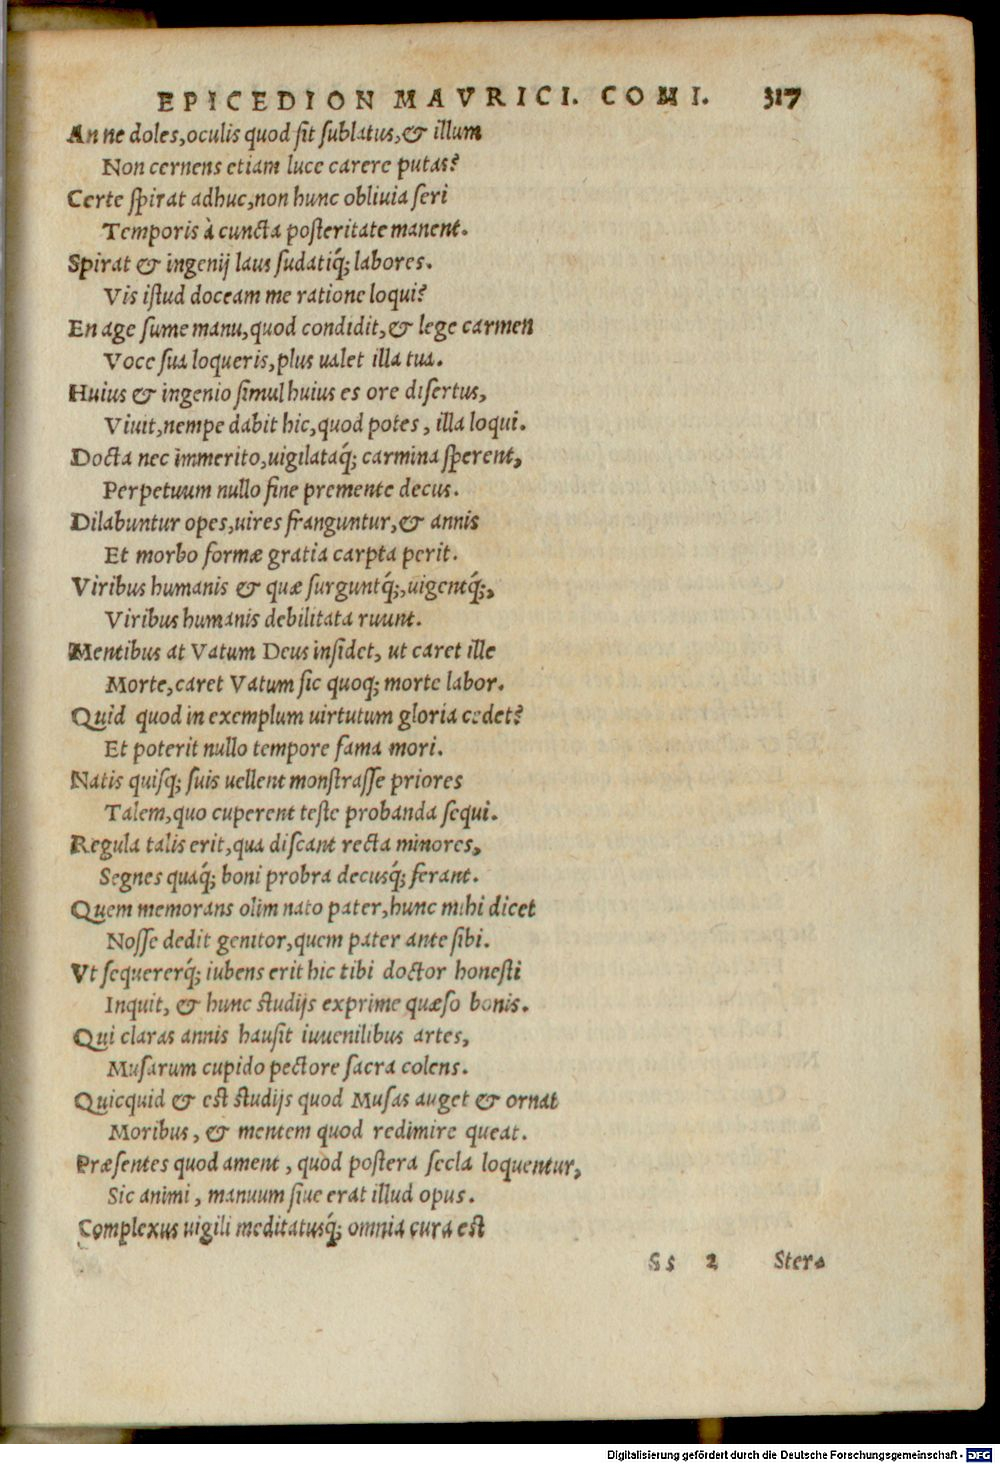 EPICEDION MAVRICI. COMI. 317
An ne doles,oculis quod sit sublatus,& illum
Non cernens etiam luce carere putas?
Certe spirat adhuc,non hunc obliuia seri
Temporis à cuncta posteritate manent.
Spirat & ingenij laus sudatiq́; labores.
Vis istud doceam me ratione loqui?
En age sume manu,quod condidit,& lege carmen
Voce sua loqueris,plus ualet illa tua.
Huius & ingenio simul huius es ore disertus,
Viuit,nempe dabit hic,quod potes, illa loqui.
Docta nec immerito,uigilataq́; carmina sperent,
Perpetuum nullo fine premente decus.
Dilabuntur opes,uires franguntur,& annis
Et morbo formæ gratia carpta perit.
Viribus humanis & quæ surguntq́;,uigentq́;,
Viribus humanis debilitata ruunt.
Mentibus at Vatum Deus insidet, ut caret ille
Morte,caret Vatum sic quoq; morte labor.
Quid quod in exemplum uirtutum gloria cedet?
Et poterit nullo tempore fama mori.
Natis quisq; suis uellent monstrasse priores
Talem,quo cuperent teste probanda sequi.
Regula talis erit,qua discant recta minores,
Segnes quaq́; boni probra decusq́; ferant.
Quem memorans olim nato pater,hunc mihi dicet
Nosse dedit genitor,quem pater ante sibi.
Vt sequererq́; iubens erit hic tibi doctor honesti
Inquit, & hunc studijs exprime quæso bonis.
Qui claras annis hausit iuuenilibus artes,
Musarum cupido pectore sacra colens.
Quicquid & est studijs quod Musas auget & ornat
Moribus, & mentem quod redimire queat.
Præsentes quod ament, quod postera secla loquentur,
Sic animi, manuum siue erat illud opus.
Complexus uigili meditatusq́; omnia cura est
Ss 2 Stera
Digitalisierung gefördert durch die Deutsche Forschungsgemeinschaft - DFG